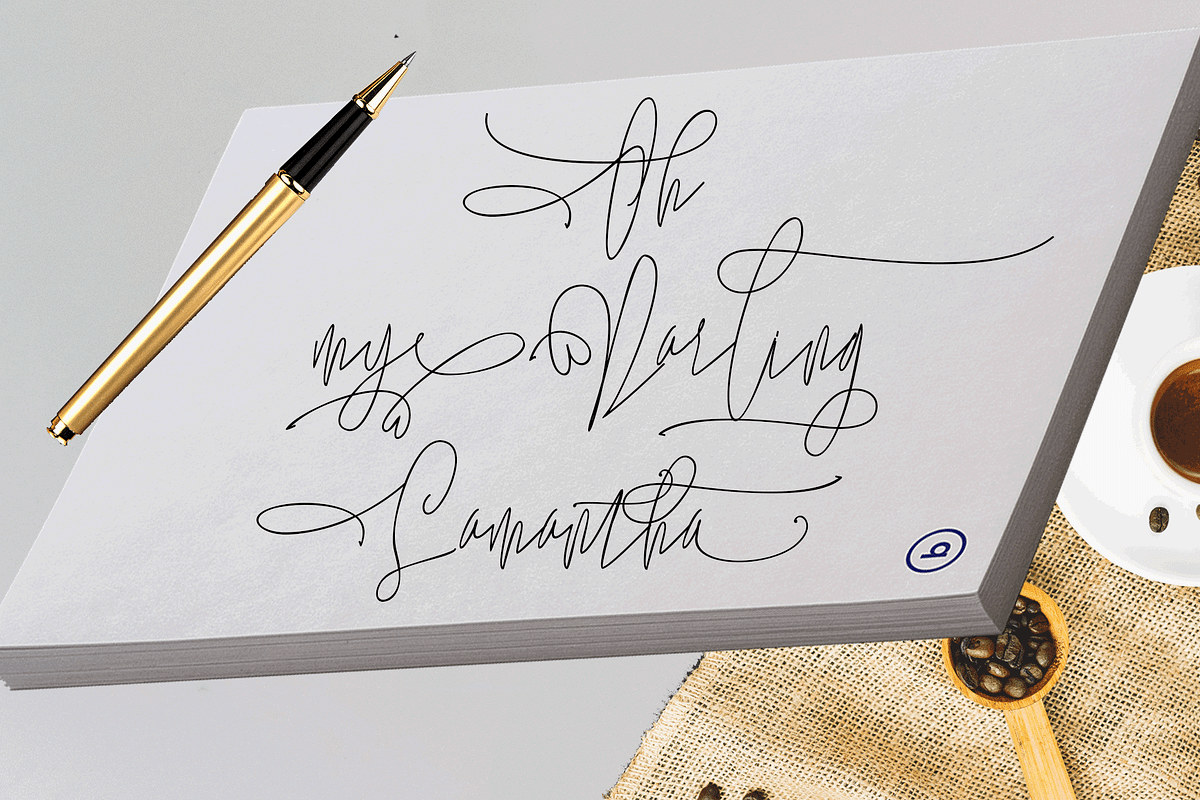 Oh
my Darling
Samantha
b